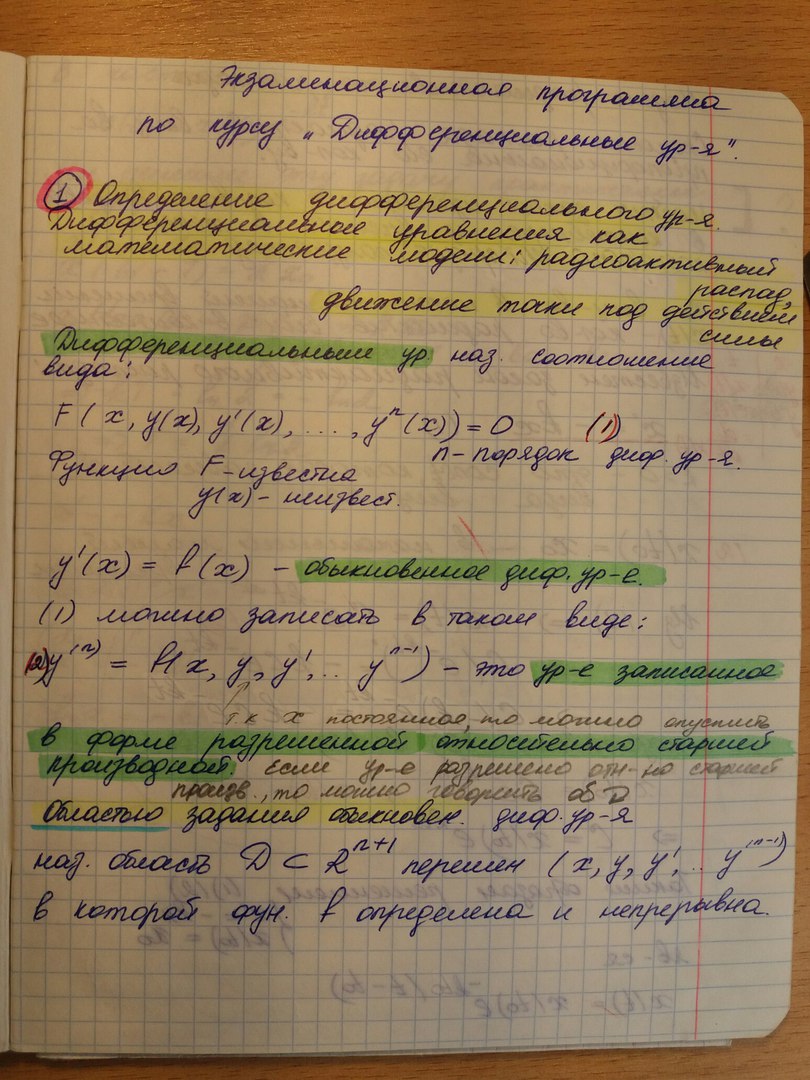 Экзаминационная программа
по курсу „Дифференциальные ур-я".
1 Определение дифференциального ур-я.
Дифференциальные уравнения как
математические модели: радиоактивный
распад,
движение точки под действием
силы
Дифференциальным ур. наз. соотношение
вида:
F(x, y(x), y'(x), ..., yⁿ(x)) = 0 (1)
n - порядок диф. ур-я.
Функция F - известна
y(x) - неизвест.
y'(x) = f(x) - обыкновенное диф. ур-е.
(1) можно записать в таком виде:
(2) y⁽ⁿ⁾ = f(x, y, y', .. yⁿ⁻¹) - это ур-е записанное
т.к x постоянное, то можно опустить
в форме разрешенной относительно старшей
производной. Если ур-е разрешено отн-но старшей
произв., то можно говорить об D
Областью задания обыкновен. диф. ур-я
наз. область D ⊂ Rⁿ⁺¹ перемен (x, y, y', .. y⁽ⁿ⁻¹⁾)
в которой фун. f определена и непрерывна.